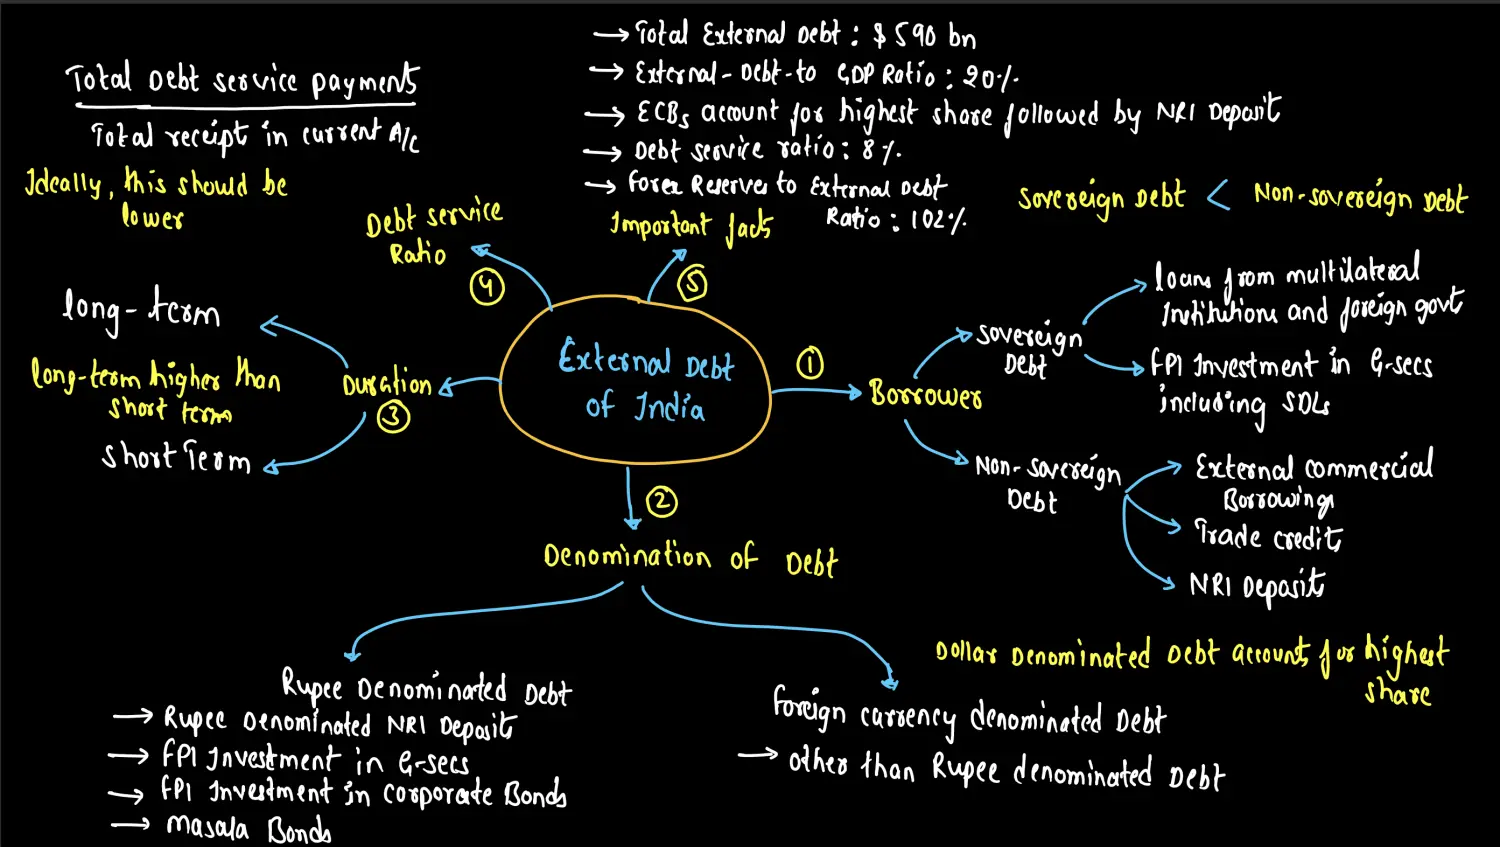 → Total External Debt : $ 590 bn
→ External-Debt-to GDP Ratio : 20%
→ ECBs account for highest share followed by NRI Deposit
→ Debt service ratio : 8%
→ Forex Reserves to External Debt
Ratio : 102%
Important facts
⑤
Total Debt service payments
Total receipt in current A/c
Ideally, this should be
lower
Debt service
Ratio
④
Sovereign Debt < Non-sovereign Debt
External Debt
of India
①
Borrower
Sovereign
Debt
loans from multilateral
Institutions and foreign govt
FPI Investment in G-secs
including SDLs
Non-sovereign
Debt
External commercial
Borrowings
Trade credit
NRI Deposit
②
Denomination of Debt
Rupee Denominated Debt
→ Rupee Denominated NRI Deposit
→ FPI Investment in G-secs
→ FPI Investment in corporate Bonds
→ Masala Bonds
Dollar Denominated Debt accounts for highest
share
Foreign currency denominated Debt
→ other than Rupee denominated Debt
Duration
③
long-term
long-term higher than
short term
Short Term